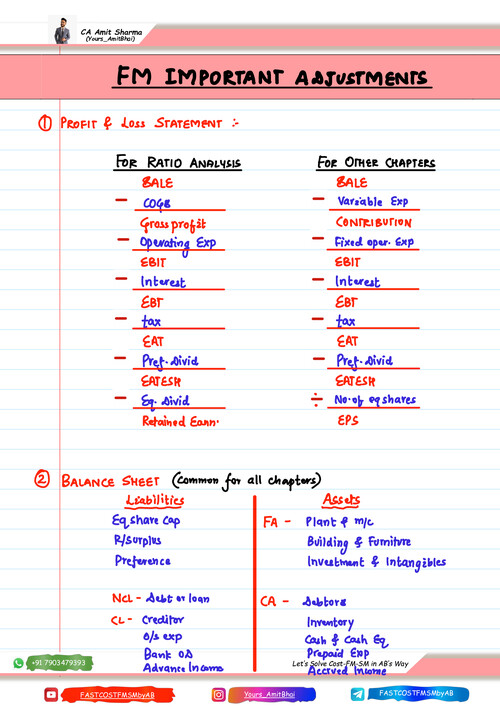 CA Amit Sharma
(Yours_AmitBhai)
FM IMPORTANT ADJUSTMENTS
① PROFIT & LOSS STATEMENT :-
FOR RATIO ANALYSIS
SALE
- COGS
Gross profit
- Operating Exp
EBIT
- Interest
EBT
- tax
EAT
- Pref. Divid
EATESH
- Eq. Divid
Retained Earn.
FOR OTHER CHAPTERS
SALE
- Variable Exp
CONTRIBUTION
- Fixed oper. Exp
EBIT
- Interest
EBT
- tax
EAT
- Pref. Divid
EATESH
÷ No. of eq shares
EPS
② BALANCE SHEET (Common for all chapters)
Liabilities
Eq share cap
R/surplus
Preference
NCL - Debt or loan
CL - Creditor
O/s exp
Bank OD
Advance Income
Assets
FA - Plant & m/c
Building & Furniture
Investment & Intangibles
CA - Debtors
Inventory
Cash & Cash Eq
Prepaid Exp
Accrued Income
+91 7903479393
Let's Solve Cost-FM-SM in AB's Way
FASTCOSTFMSMbyAB
Yours_AmitBhai
FASTCOSTFMSMbyAB